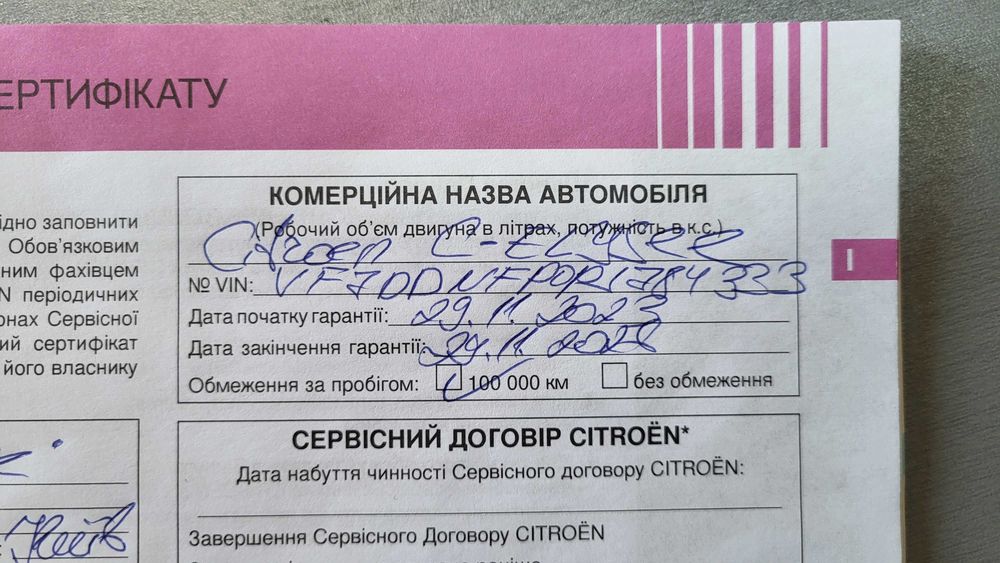 ЕРТИФІКАТУ
ідно заповнити
Обов'язковим
ним фахівцем
N періодичних
онах Сервісної
ий сертифікат
його власнику
КОМЕРЦІЙНА НАЗВА АВТОМОБІЛЯ
(Робочий об'єм двигуна в літрах, потужність в к.с.)
Citroen C-ELYSEE
№ VIN: VF7DDNFP0RJ784333
Дата початку гарантії: 29.11.2023
Дата закінчення гарантії: 29.11.2026
Обмеження за пробігом: 100 000 км без обмеження
I
СЕРВІСНИЙ ДОГОВІР CITROËN*
Дата набуття чинності Сервісного договору CITROËN:
Київ
Завершення Сервісного Договору CITROËN